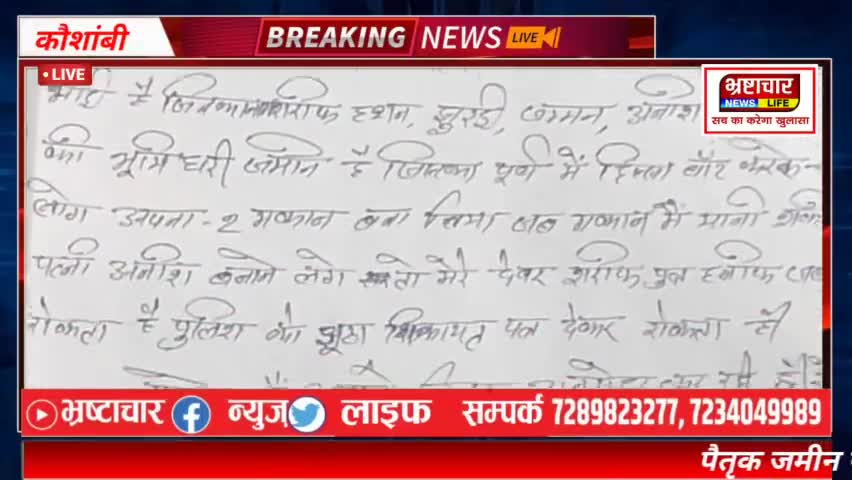 कौशांबी
BREAKING NEWS LIVE
LIVE
भ्रष्टाचार
NEWS LIFE
सच का करेगा खुलासा
भाई है जिनका शरीफ हशन, झुरई, जम्मन, अनीश
की भूमि धरी जमीन है जिसका पूर्व में हिस्सा बाँट करके
लोग अपना-2 मकान बना लिया जब मकान में
पत्नी अनीश बनाने लगे तो मेरे देवर शरीफ पुत्र हनीफ
रोकता है पुलिश को झूठा शिकायत पत्र देकर रोकता है
भ्रष्टाचार न्युज लाइफ सम्पर्क 7289823277, 7234049989
पैतृक जमीन